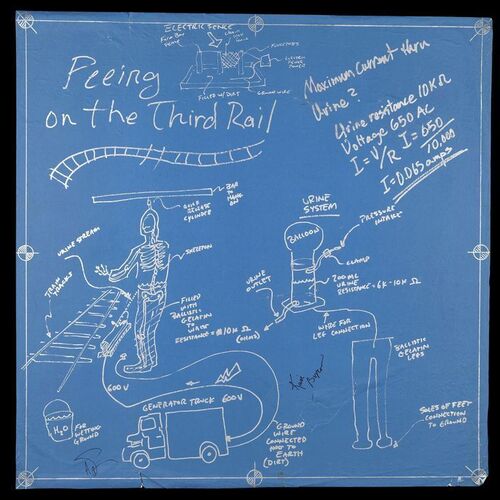 ELECTRIC FENCE
FILLED W/DIRT
GROUND WIRE
Peeing
on the Third Rail
Maximum current thru
Urine?
Urine resistance 10KΩ
Voltage 650 AC
I = V/R I = 650
10,000
I = 0.065 amps
BAR
TO
HANG
ON
QUICK
RELEASE
CYLINDER
URINE STREAM
SKELETON
TRAIN
TRACKS
FILLED
WITH
BALLISTIC
GELATIN
TO
RESISTANCE = 10KΩ
(OHMS)
600V
URINE
SYSTEM
BALLOON
PRESSURE
INTAKE
CLAMP
URINE
OUTLET
200ML
URINE
RESISTANCE = 6K-10KΩ
WIRE FOR
LEG CONNECTION
BALLISTIC
GELATIN
LEGS
SOLES OF FEET
CONNECTION
TO GROUND
GENERATOR TRUCK 600V
GROUND
WIRE
CONNECTED
TO EARTH
(DIRT)
H₂O
FOR
WETTING
GROUND